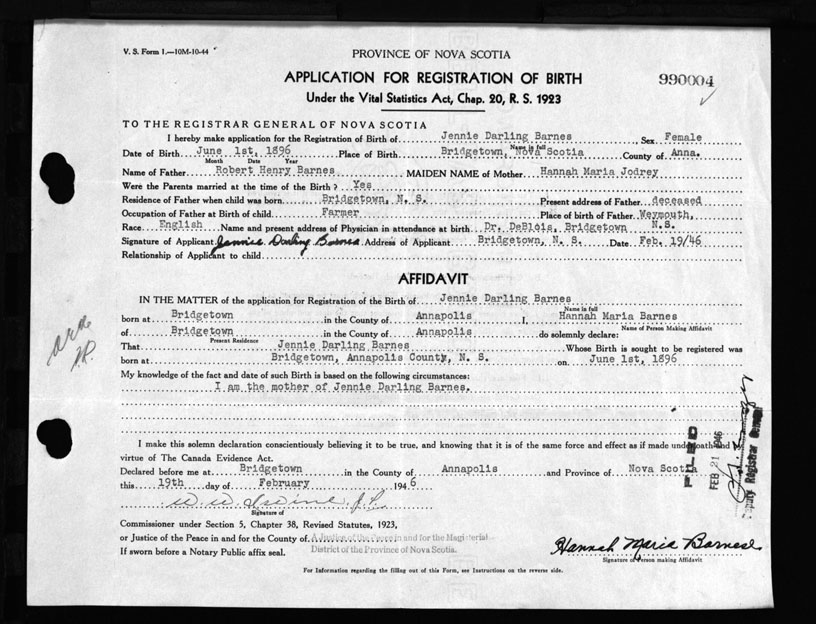 V. S. Form 1.—10M-10-44
PROVINCE OF NOVA SCOTIA
APPLICATION FOR REGISTRATION OF BIRTH
990004
Under the Vital Statistics Act, Chap. 20, R. S. 1923
TO THE REGISTRAR GENERAL OF NOVA SCOTIA
I hereby make application for the Registration of Birth of Jennie Darling Barnes Sex Female
Name in full
Date of Birth June 1st, 1896 Place of Birth Bridgetown, Nova Scotia County of Anna.
Month Date Year
Name of Father Robert Henry Barnes MAIDEN NAME of Mother Hannah Maria Jodrey
Were the Parents married at the time of the Birth? Yes
Residence of Father when child was born Bridgetown, N. S. Present address of Father deceased
Occupation of Father at Birth of child Farmer Place of birth of Father Weymouth,
Race English Name and present address of Physician in attendance at birth Dr. DeBlois, Bridgetown N.S.
Signature of Applicant Jennie Darling Barnes Address of Applicant Bridgetown, N. S. Date Feb. 19/46
Relationship of Applicant to child
AFFIDAVIT
IN THE MATTER of the application for Registration of the Birth of Jennie Darling Barnes
Name in full
born at Bridgetown in the County of Annapolis I, Hannah Maria Barnes
Name of Person Making Affidavit
of Bridgetown in the County of Annapolis do solemnly declare:
Present Residence
That Jennie Darling Barnes Whose Birth is sought to be registered was
born at Bridgetown, Annapolis County, N. S. on June 1st, 1896
My knowledge of the fact and date of such Birth is based on the following circumstances:
I am the mother of Jennie Darling Barnes.
I make this solemn declaration conscientiously believing it to be true, and knowing that it is of the same force and effect as if made under oath and
virtue of The Canada Evidence Act.
Declared before me at Bridgetown in the County of Annapolis and Province of Nova Scotia
this 19th day of February 1946
FILED
FEB 21 1946
Deputy Registrar General
W. W. Irvine J.P.
Signature of
Commissioner under Section 5, Chapter 38, Revised Statutes, 1923,
or Justice of the Peace in and for the County of A Justice of the Peace in and for the Magisterial
If sworn before a Notary Public affix seal. District of the Province of Nova Scotia.
Hannah Maria Barnes
Signature of Person making Affidavit
For Information regarding the filling out of this Form, see Instructions on the reverse side.